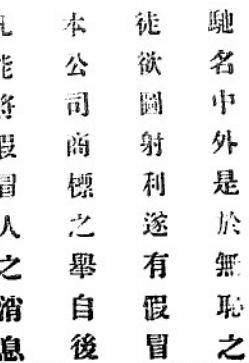 馳名中外是於無恥之
徒欲圖射利遂有假冒
本公司商標之舉自後
凡能將假冒人之消息